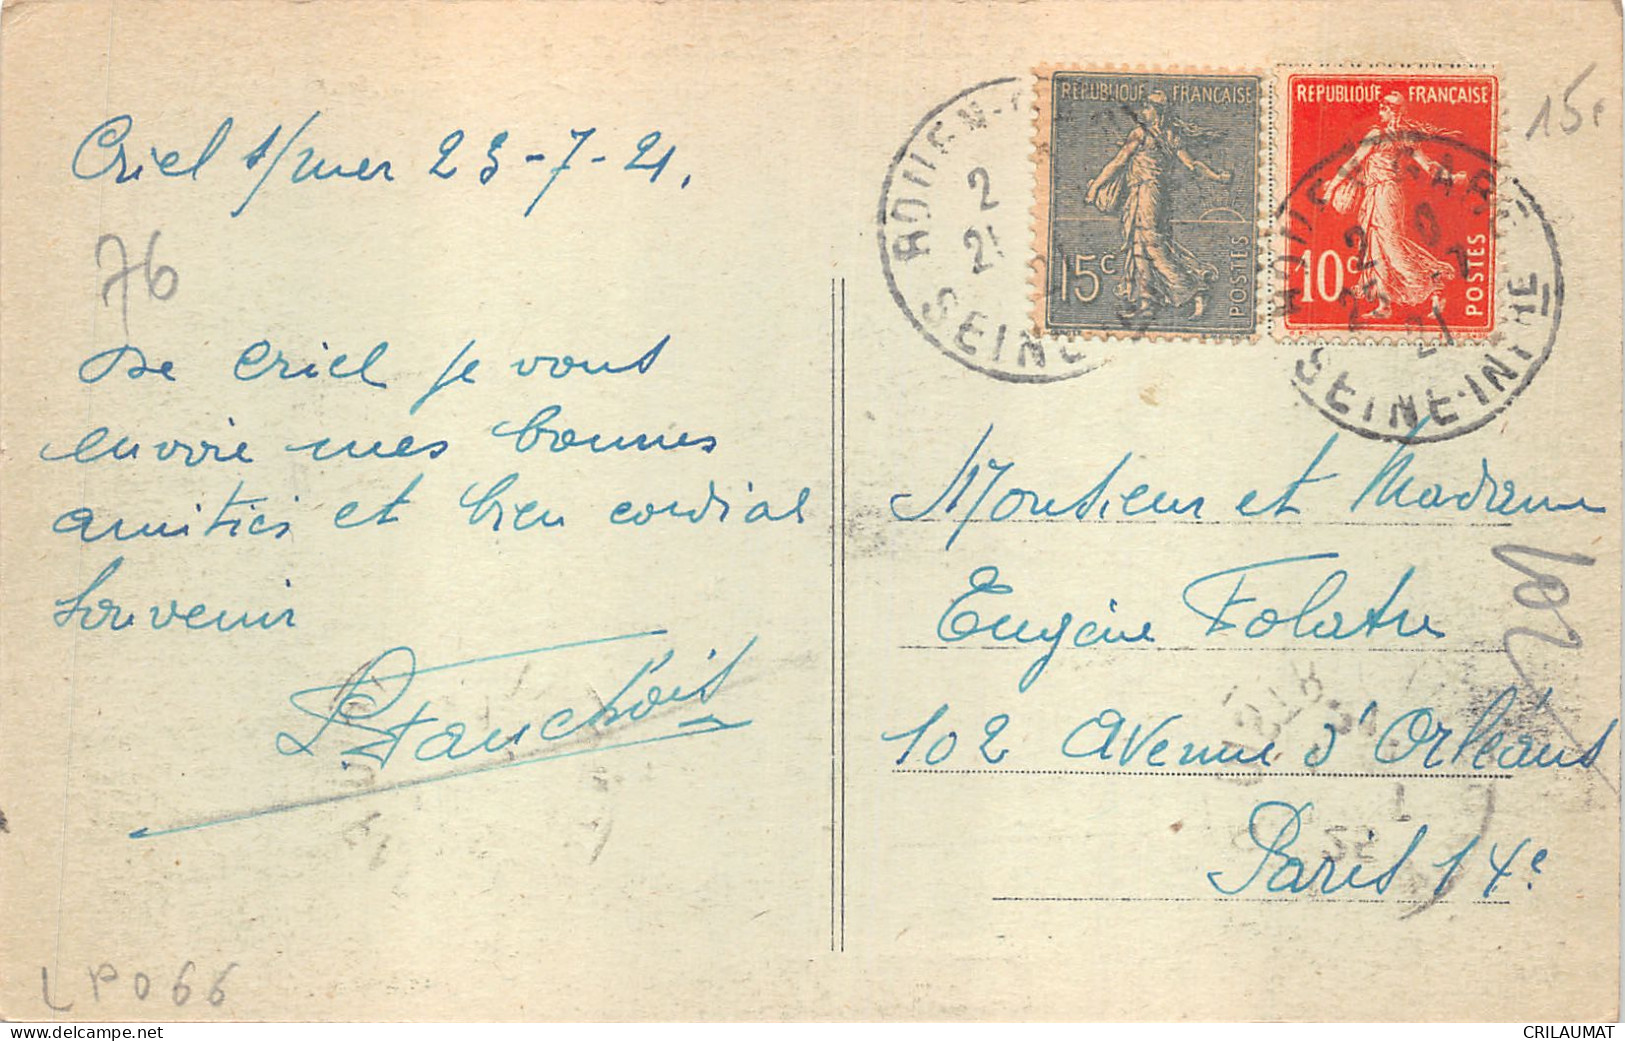 Criel s/mer 23-7-21.
76
De Criel je vous
envoie mes bonnes
amitiés et bien cordial
souvenir
ROUEN-
2
SEINE
RÉPUBLIQUE FRANÇAISE
15c
POSTES
RÉPUBLIQUE FRANÇAISE
10c
POSTES
ROUEN GARE
2 0
25 -7
21
SEINE-INFRE
15€
Monsieur et Madame
Eugène Folatre
102 Avenue d'Orléans
Paris 14e
LP066
www.delcampe.net
CRILAUMAT